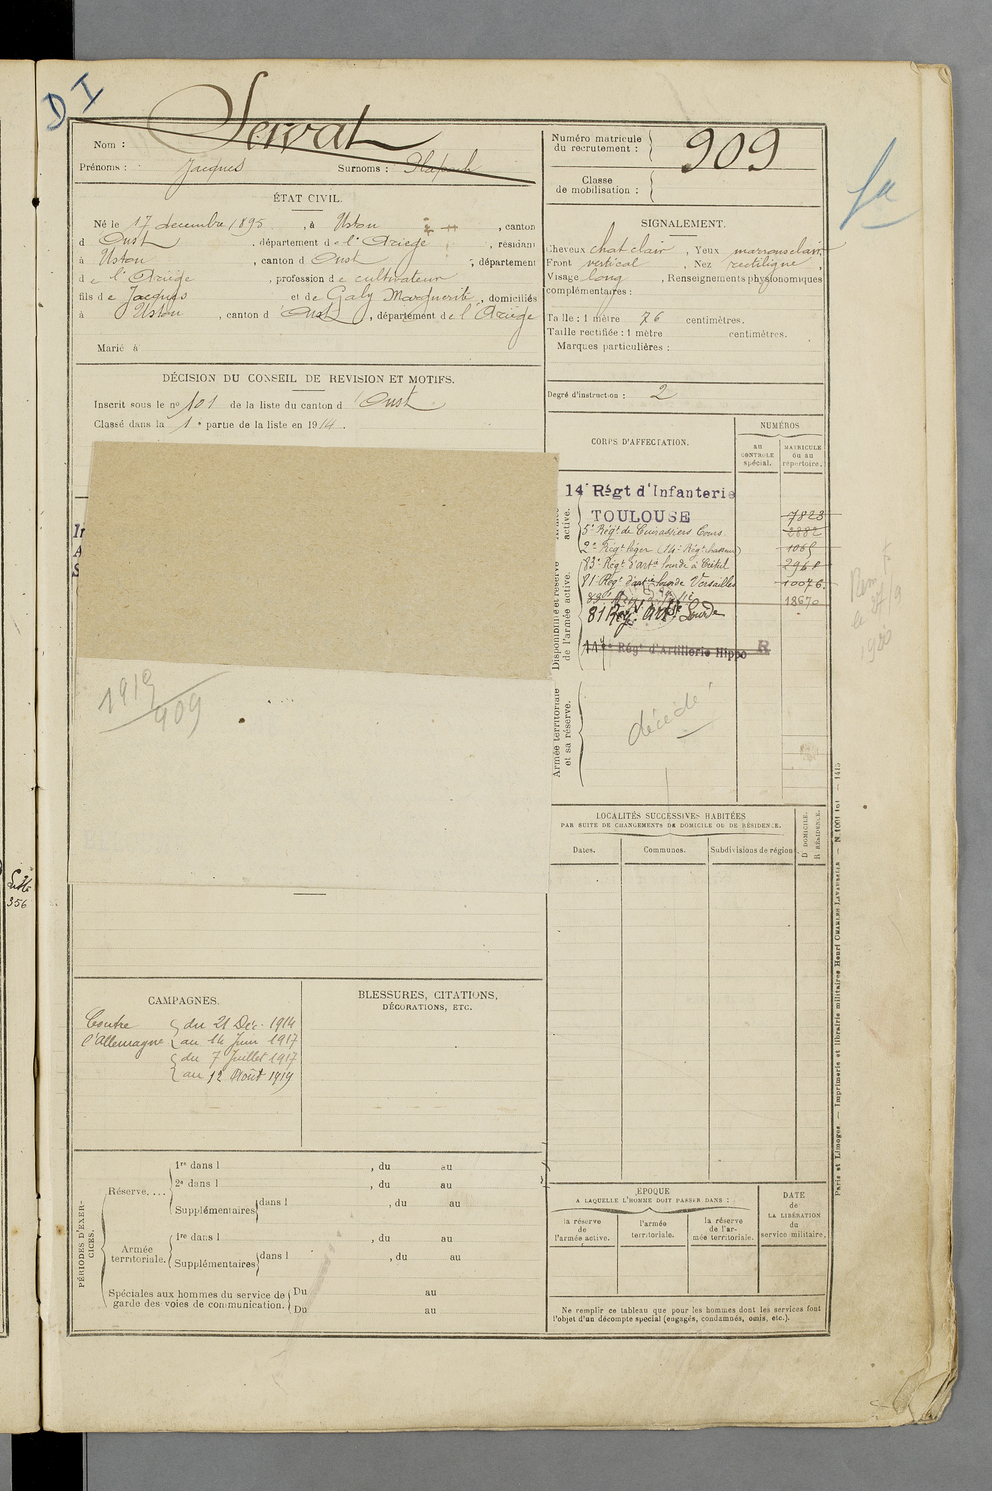 D I
Servat
Nom :
Prénoms : Jacques Surnoms :
Numéro matricule
du recrutement : 909
Classe
de mobilisation :
fa
ÉTAT CIVIL.
Né le 17 décembre 1895, à Ustou, canton
d Oust, département de l'Ariège, résidant
à Ustou, canton d Oust, département
de l'Ariège, profession de cultivateur
fils de Jacques et de Galy Marguerite, domiciliés
à Ustou, canton d'Oust, département de l'Ariège
Marié à
SIGNALEMENT.
Cheveux chat clair, Yeux marrons clair
Front vertical, Nez rectiligne,
Visage long, Renseignements physionomiques
complémentaires :
Taille : 1 mètre 76 centimètres.
Taille rectifiée : 1 mètre centimètres.
Marques particulières :
Degré d'instruction : 2
DÉCISION DU CONSEIL DE REVISION ET MOTIFS.
Inscrit sous le no 101 de la liste du canton d'Oust
Classé dans la 1e partie de la liste en 1914.
In
A
S
1919
909
CORPS D'AFFECTATION.
NUMÉROS
au
CONTRÔLE
spécial.
MATRICULE
ou au
répertoire.
active.
Disponibilité et réserve
de l'armée active.
Armée territoriale
et sa réserve.
14e Régt d'Infanterie
TOULOUSE 7823
5e Régt de Cuirassiers Tours. 2882
2e Régt léger (14e Régt chasseurs) 1065
83e Régt d'artie lourde à Créteil 2961
81e Régt d'artie lourde Versailles 10076
18670
81 Reg. Artie Lourde
Régt d'Artillerie Hippo R
décédé
1920
LOCALITÉS SUCCESSIVES HABITÉES
PAR SUITE DE CHANGEMENTS DE DOMICILE OU DE RÉSIDENCE.
Dates.
Communes.
Subdivisions de région
D DOMICILE.
R RÉSIDENCE.
356
CAMPAGNES.
Contre du 21 Déc. 1914
l'Allemagne au 14 Juin 1917
du 7 Juillet 1917
au 12 Août 1919
BLESSURES, CITATIONS,
DÉCORATIONS, ETC.
PÉRIODES D'EXERCICES.
Réserve....
1re dans l , du au
2e dans l , du au
Supplémentaires dans l , du au
Armée
territoriale.
1re dans l , du au
Supplémentaires dans l , du au
Spéciales aux hommes du service de
garde des voies de communication.
Du au
Du au
ÉPOQUE
A LAQUELLE L'HOMME DOIT PASSER DANS :
la réserve
de
l'armée active.
l'armée
territoriale.
la réserve
de l'ar-
mée territoriale.
DATE
de
LA LIBÉRATION
du
service militaire.
Ne remplir ce tableau que pour les hommes dont les services font
l'objet d'un décompte spécial (engagés, condamnés, omis, etc.).
Paris et Limoges. — Imprimerie et librairie militaires Henri CHARLES-LAVAUZELLE